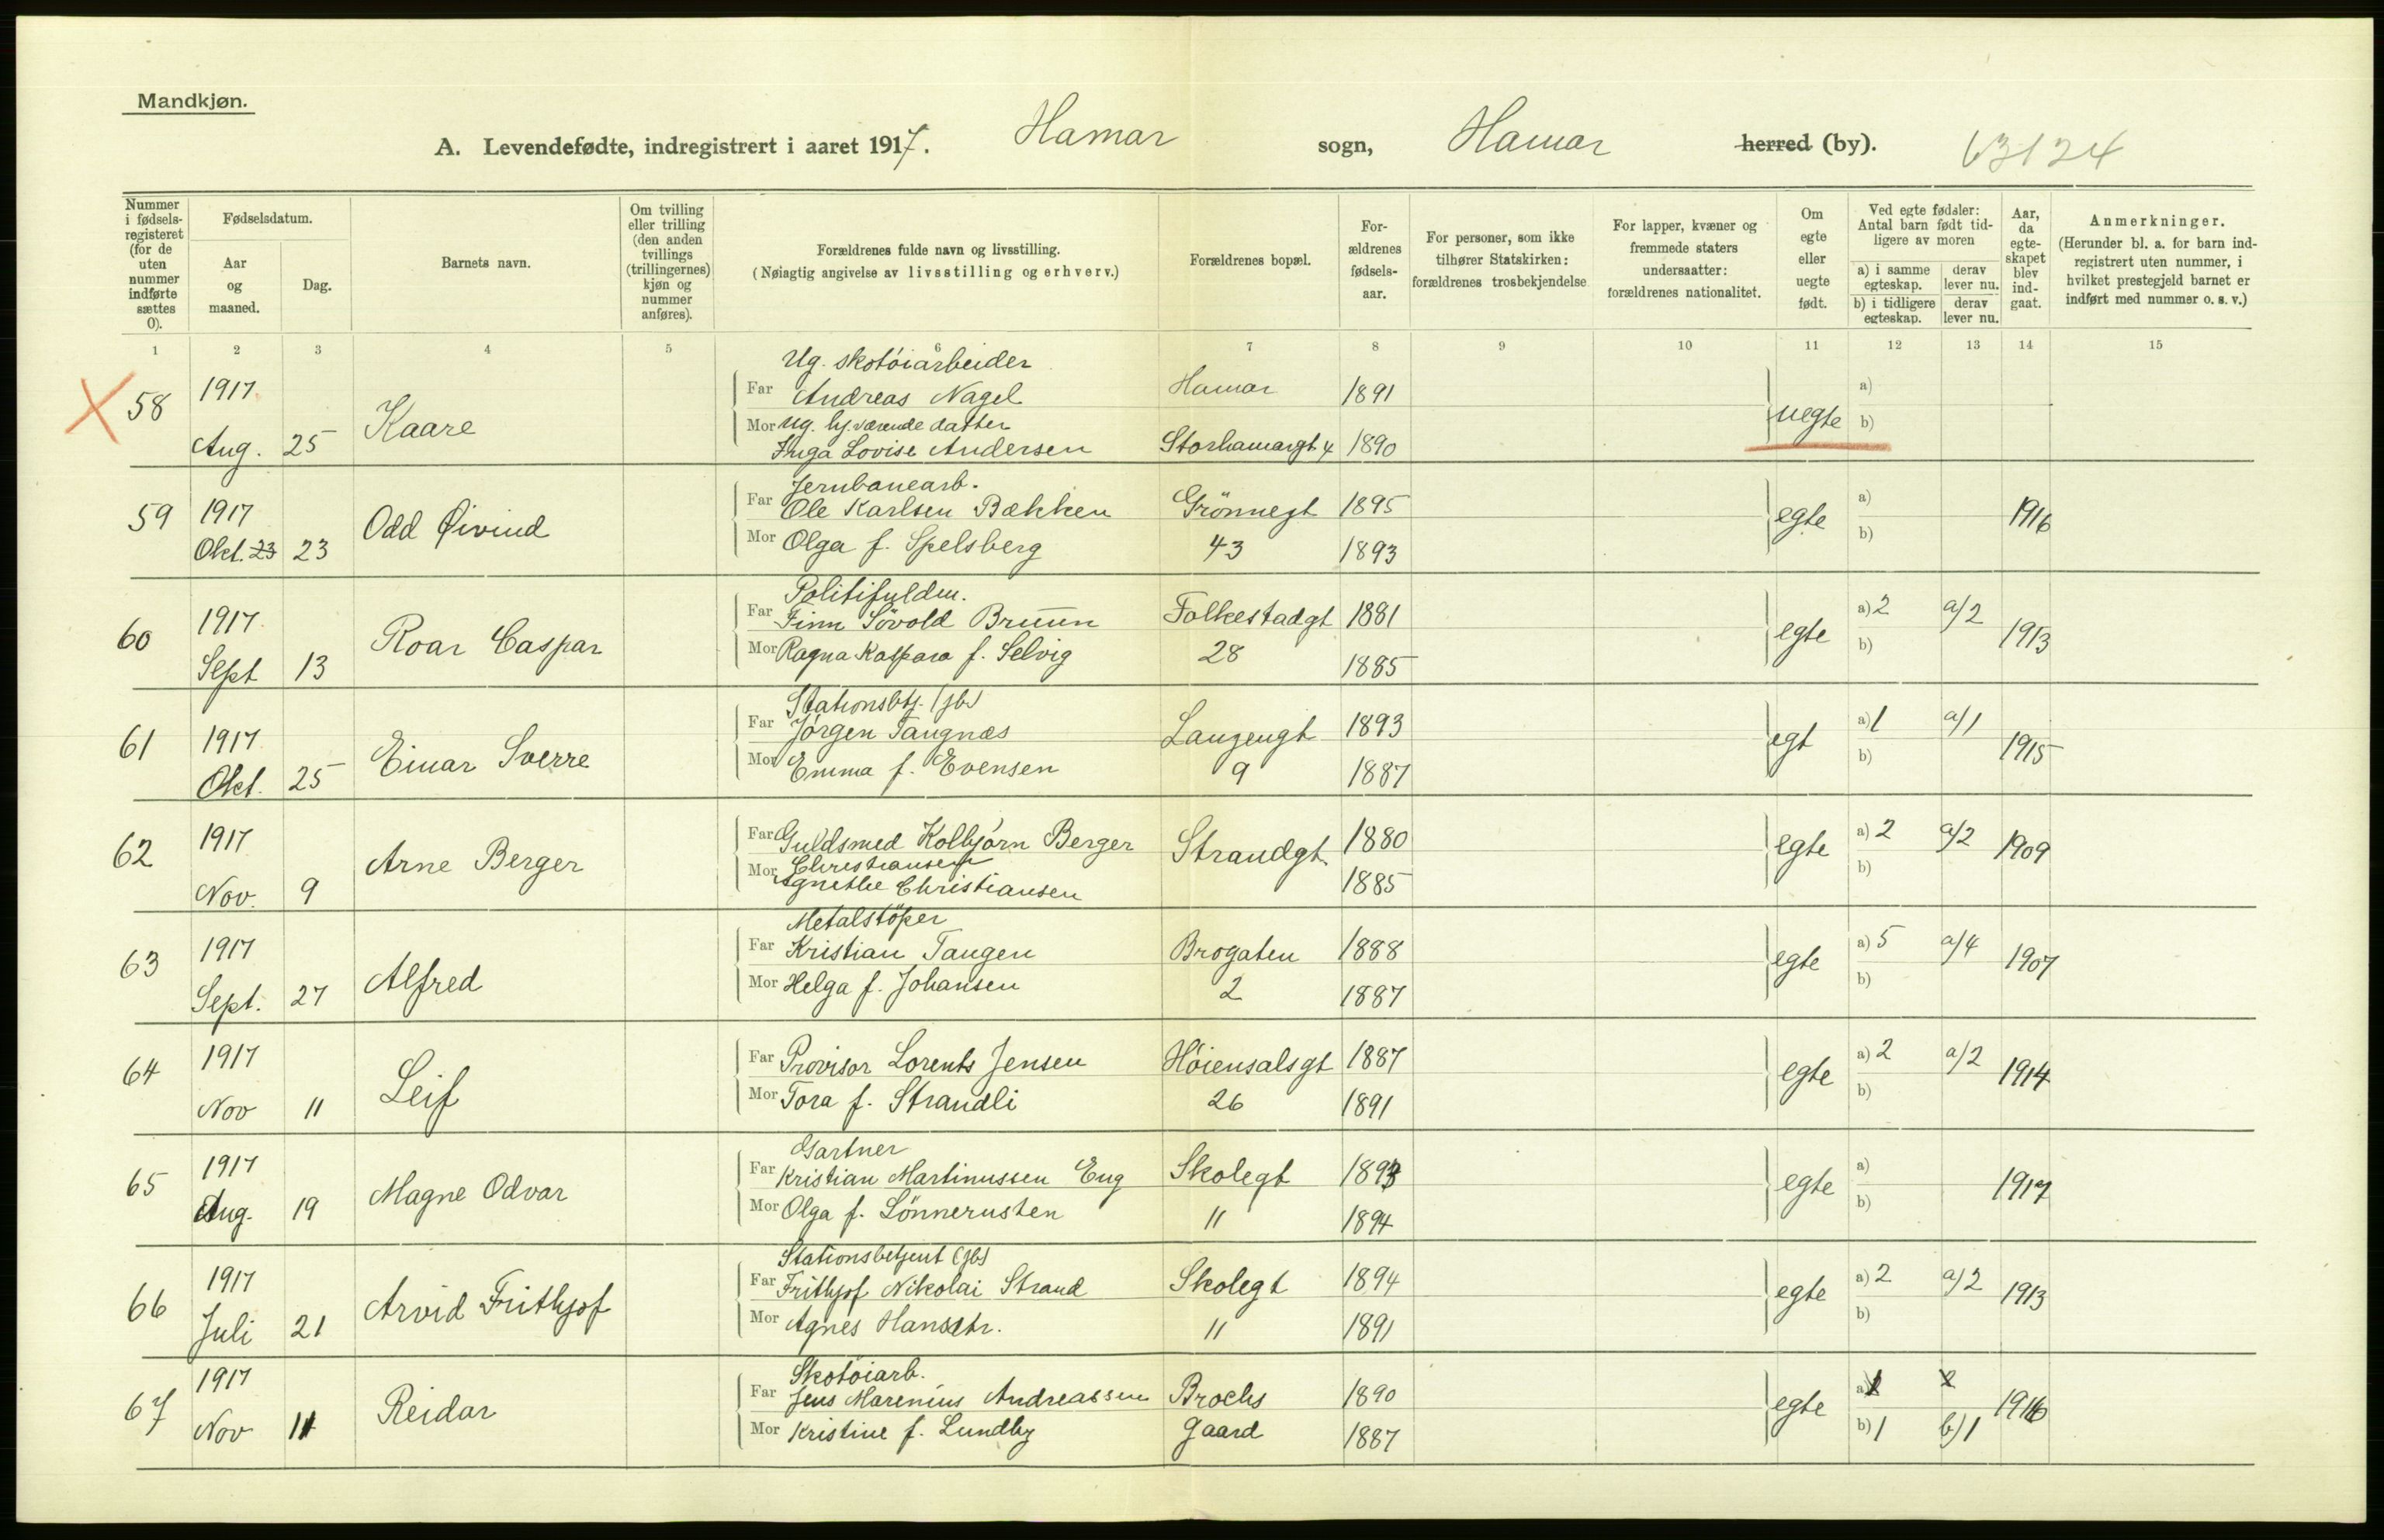 Mandkjøn.
A. Levendefødte, indregistrert i aaret 1917. Hamar sogn, Hamar herred (by). 63124
Nummer i fødselsregisteret (for de uten nummer indførte sættes 0).
Fødselsdatum.
Aar og maaned.
Dag.
Barnets navn.
Om tvilling eller trilling (den anden tvillings (trillingernes) kjøn og nummer anføres).
Forældrenes fulde navn og livsstilling.
(Nøiagtig angivelse av livsstilling og erhverv.)
Forældrenes bopæl.
Forældrenes fødselsaar.
For personer, som ikke tilhører Statskirken: forældrenes trosbekjendelse
For lapper, kvæner og fremmede staters undersaatter: forældrenes nationalitet.
Om egte eller uegte født.
Ved egte fødsler: Antal barn født tidligere av moren
a) i samme egteskap.
derav lever nu.
b) i tidligere egteskap.
derav lever nu.
Aar, da egteskapet blev indgaat.
Anmerkninger.
(Herunder bl. a. for barn indregistrert uten nummer, i hvilket prestegjeld barnet er indført med nummer o. s. v.)
1 2 3 4 5 6 7 8 9 10 11 12 13 14 15
Ug. skotöiarbeider
58 1917. Far Andreas Nagel Hamar 1891 a)
Kaare Mor Ug. hj.værende datter uegte b)
Aug. 25 Inga Lovise Andersen Storhamargt. 4 1890
Jernbanearb.
59 1917 Far Ole Karlsen Bækken Grönnegt 1895 a)
Odd Öivind egte 1916
Okt. 23 23 Mor Olga f. Spelsberg 43 1893 b)
Politifuldm.
60 1917. Far Finn Sövold Bruun Folkestadgt 1881 a) 2 a/2
Roar Caspar egte 1913
Sept 13 Mor Ragna Kaspara f. Selvig 28 1885 b)
Stationsbtj. (jb)
61 1917. Far Jörgen Tangnæs Langengt 1893 a) 1 a/1
Einar Sverre egt 1915
Okt. 25 Mor Emma f. Evensen 9 1887 b)
62 1917 Far Guldsmed Kolbjörn Berger Strandgt. 1880 a) 2 a/2
Arne Berger egte 1909
Christiansen
Nov. 9 Mor Agnethe Christiansen 1885 b)
Metalstöper
63 1917 Far Kristian Tangen Brogaten 1888 a) 5 a/4
Alfred egte 1907
Sept. 27 Mor Helga f. Johansen 2 1887 b)
64 1917 Far Provisor Lorents Jensen Höiensalsgt 1887 a) 2 a/2
Leif egte 1914
Nov 11 Mor Tora f. Strandli 26 1891 b)
Gartner
65 1917 Far Kristian Martinussen Eng Skolegt 1893 a)
Magne Odvar egte 1917
Aug. 19 Mor Olga f. Lönnerusten 11 1894 b)
Stationsbetjent (jb)
66 1917 Far Frithjof Nikolai Strand Skolegt 1894 a) 2 a/2
Arvid Frithjof egte 1913
Juli 21 Mor Agnes Hansdtr. 11 1891 b)
Skotöiarb.
67 1917 Far Jens Marenius Andreassen Brochs 1890 a) 2
Reidar egte 1916
Nov 11 Mor Kristine f. Lundby gaard 1887 b) 1 b) 1